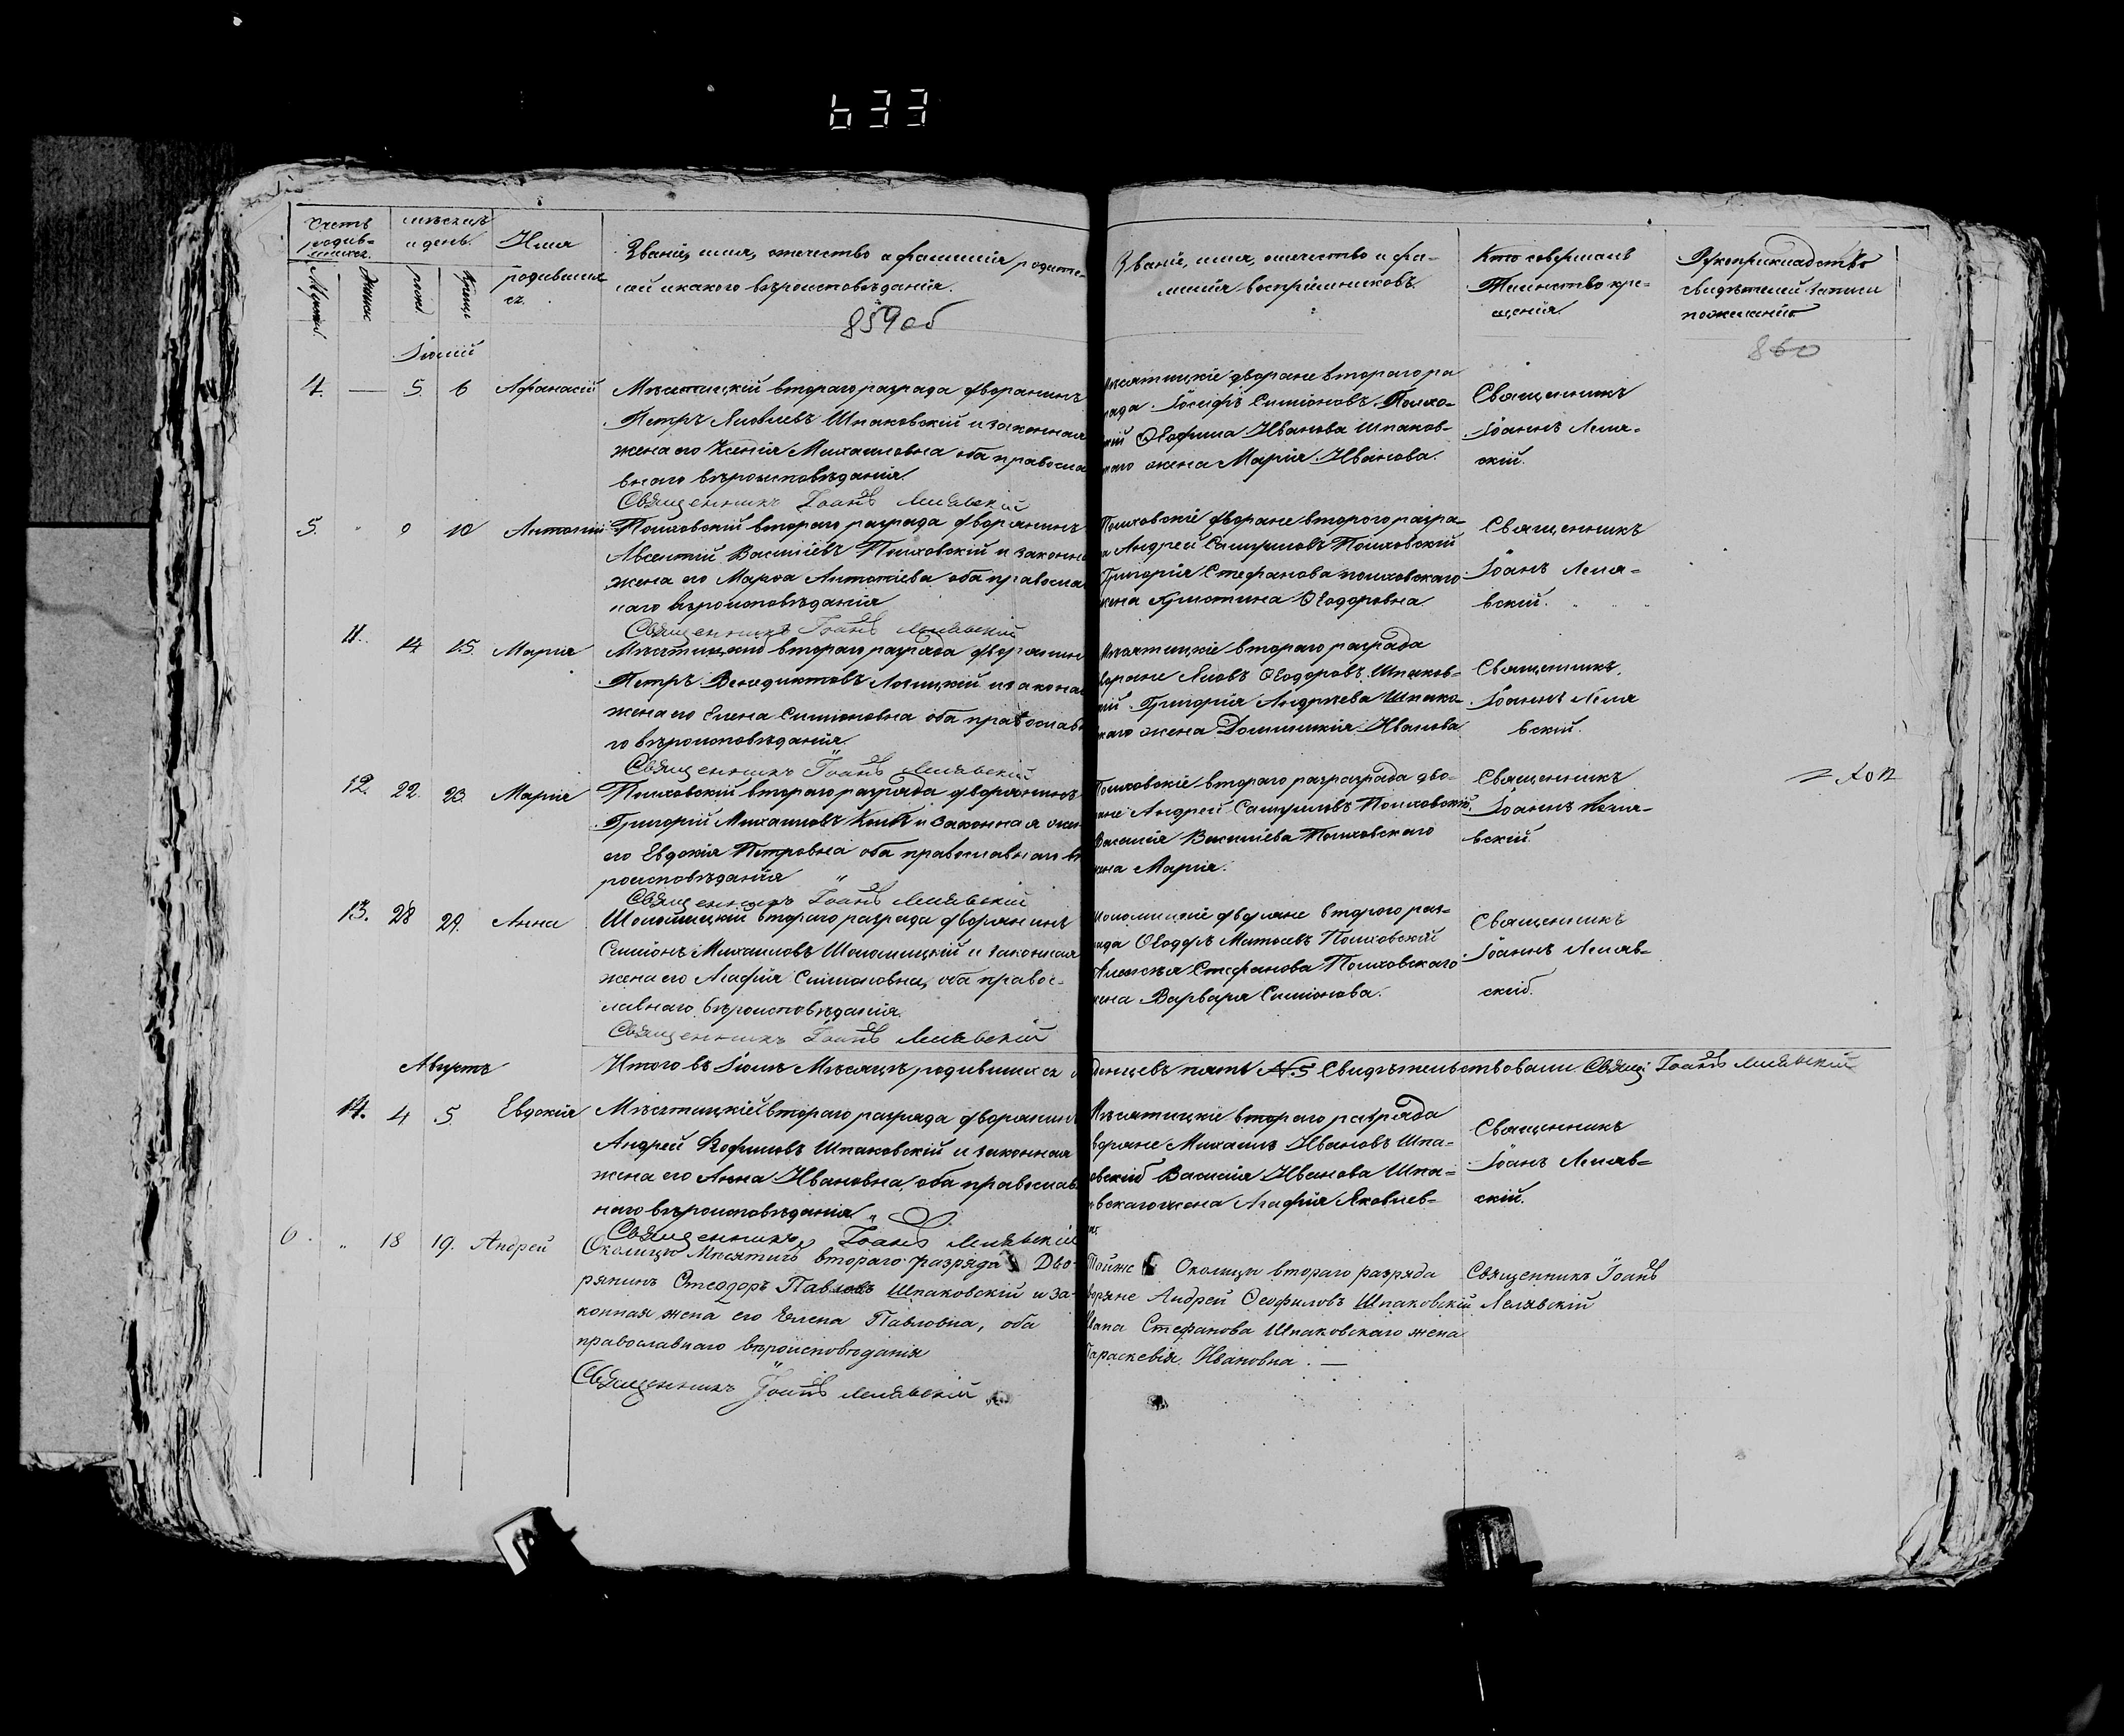 633
Счетъ родив-шихся.
мѣсяцъ и день.
Имя родившихся.
Званіе, имя, отчество и фамилія родите-
лей и какого вѣроисповѣданія.
859 об
Званіе, имя, отчество и фа-
милія воспріемниковъ.
Кто совершалъ
Таинство кре-
щенія
Рукоприкладство
свидѣтелей записи
по желанію
860
Іюлій
4. — 5. 6 Афанасій
Мѣсятицкій втораго разряда дворянинъ
Петръ Яковлевъ Шпаковскій и законная
жена его Ксенія Михаиловна оба правосла
внаго вѣроисповѣданія.
Священникъ Іоаннъ Лелявскій
дворяне втораго ра
Іосифъ Симіоновъ
Иванова Шпаков-
жена Марія Иванова.
Священникъ
Іоаннъ Леля-
скій.
5. 10 Антоній
Полховскій втораго разряда дворянинъ
Авксентій Василіевъ Полховскій и законна
жена его Марѳа Антоніева оба правосла
наго вѣроисповѣданія
Священникъ Іоаннъ Лелявскій
Полховскіе дворяне второго разря-
а Андрей Самуиловъ Полховскій
Григорія Стефанова Полховскаго
жена Христина Ѳеодоровна.
Священникъ
Іоанъ Леля-
вскій.
11. 14 15. Марія
втораго разряда дворянин
Петръ Венедиктовъ и закона
жена его Елена Симіоновна оба православ
го вѣроисповѣданія.
Священникъ Іоаннъ Лелявскій
втораго разряда
воряне Яковъ Ѳеодоровъ Шпаков-
кій Григорія Андреева Шпако-
каго жена Домникія Иванова
Священникъ
Іоаннъ Леля
вскій.
12. 22. 23. Марія
Полховскій втораго разряда дворянинъ
Григорій Михаиловъ и законная жен
его Евдокія Петровна оба православнаго вѣ
роисповѣданія
Священникъ Іоаннъ Лелявскій
Полховскіе втораго разразряда дво-
ряне Андрей Самуиловъ Полховскій,
Василія Василіева Полховскаго
жена Марія.
Священникъ
Іоаннъ Леля-
вскій.
13. 28 29. Анна
Шоломицкій втораго разряда дворянинъ
Симіонъ Михаиловъ Шоломицкій и законная
жена его Агафія Симіоновна, оба правос-
лавнаго вѣроисповѣданія.
Священникъ Іоаннъ Лелявскій
Шоломицкіе дворяне второго раз-
ряда Ѳеодоръ Матѳеевъ Полховскій
Алексѣя Стефанова Полховскаго
жена Варвара Симіонова.
Священникъ
Іоаннъ Леляв-
скій.
Августъ
Итого въ Іюлѣ Мѣсяцѣ родившихся
денцевъ пять №5 Свидѣтельствовали Свящ: Іоаннъ Лелявскій
14. 4 5. Евдокія
Мѣсятицкій втораго разряда дворянинъ
Андрей Ѳеофиловъ Шпаковскій и законная
жена его Анна Ивановна, оба православ
наго вѣроисповѣданія
Священникъ Іоаннъ Лелявскій
Мѣсятицкіе втораго разряда
воряне Михаилъ Ивановъ Шпа-
овскій Василія Иванова Шпа-
овскаго жена Агафія Яковлев-
на.
Священникъ
Іоанъ Леляв-
скій.
6. „ 18 19. Андрей
Околицы Мѣсятичъ втораго разряда Дво-
рянинъ Ѳеодоръ Павловъ Шпаковскій и за-
конная жена его Елена Павловна, оба
православнаго вѣроисповѣданія
Священникъ Іоаннъ Лелявскій
Тойже Околицы втораго разряда
воряне Андрей Ѳеофиловъ Шпаковскій
Стефанова Шпаковскаго жена
Параскевія Ивановна. —
Священникъ Іоанъ
Лелявскій